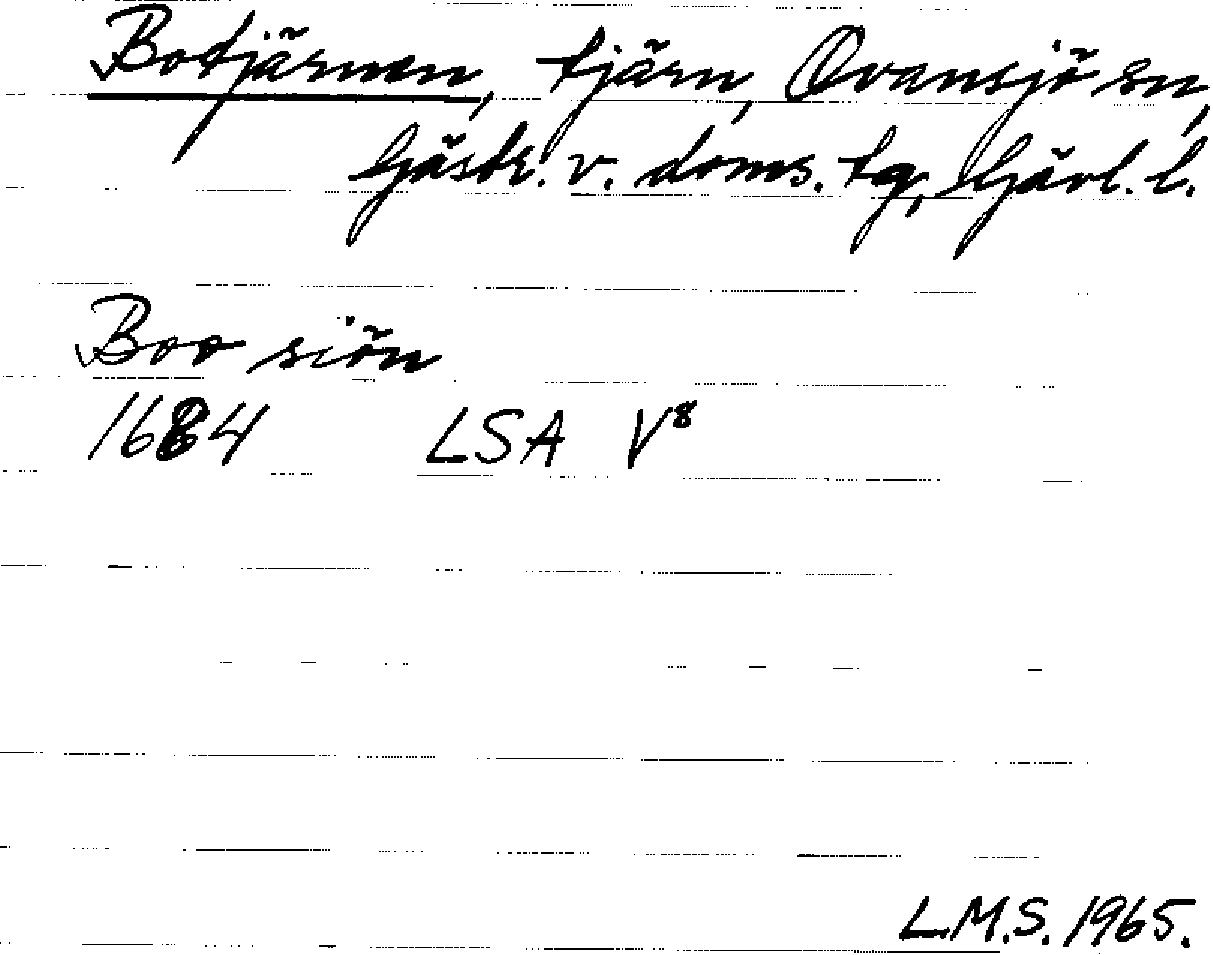 Botjärnen, tjärn, Ovansjö sn,
Gästr. v. doms. tg, Gävl. l.
Boo siön
1684 LSA V⁸
L.M.S. 1965.